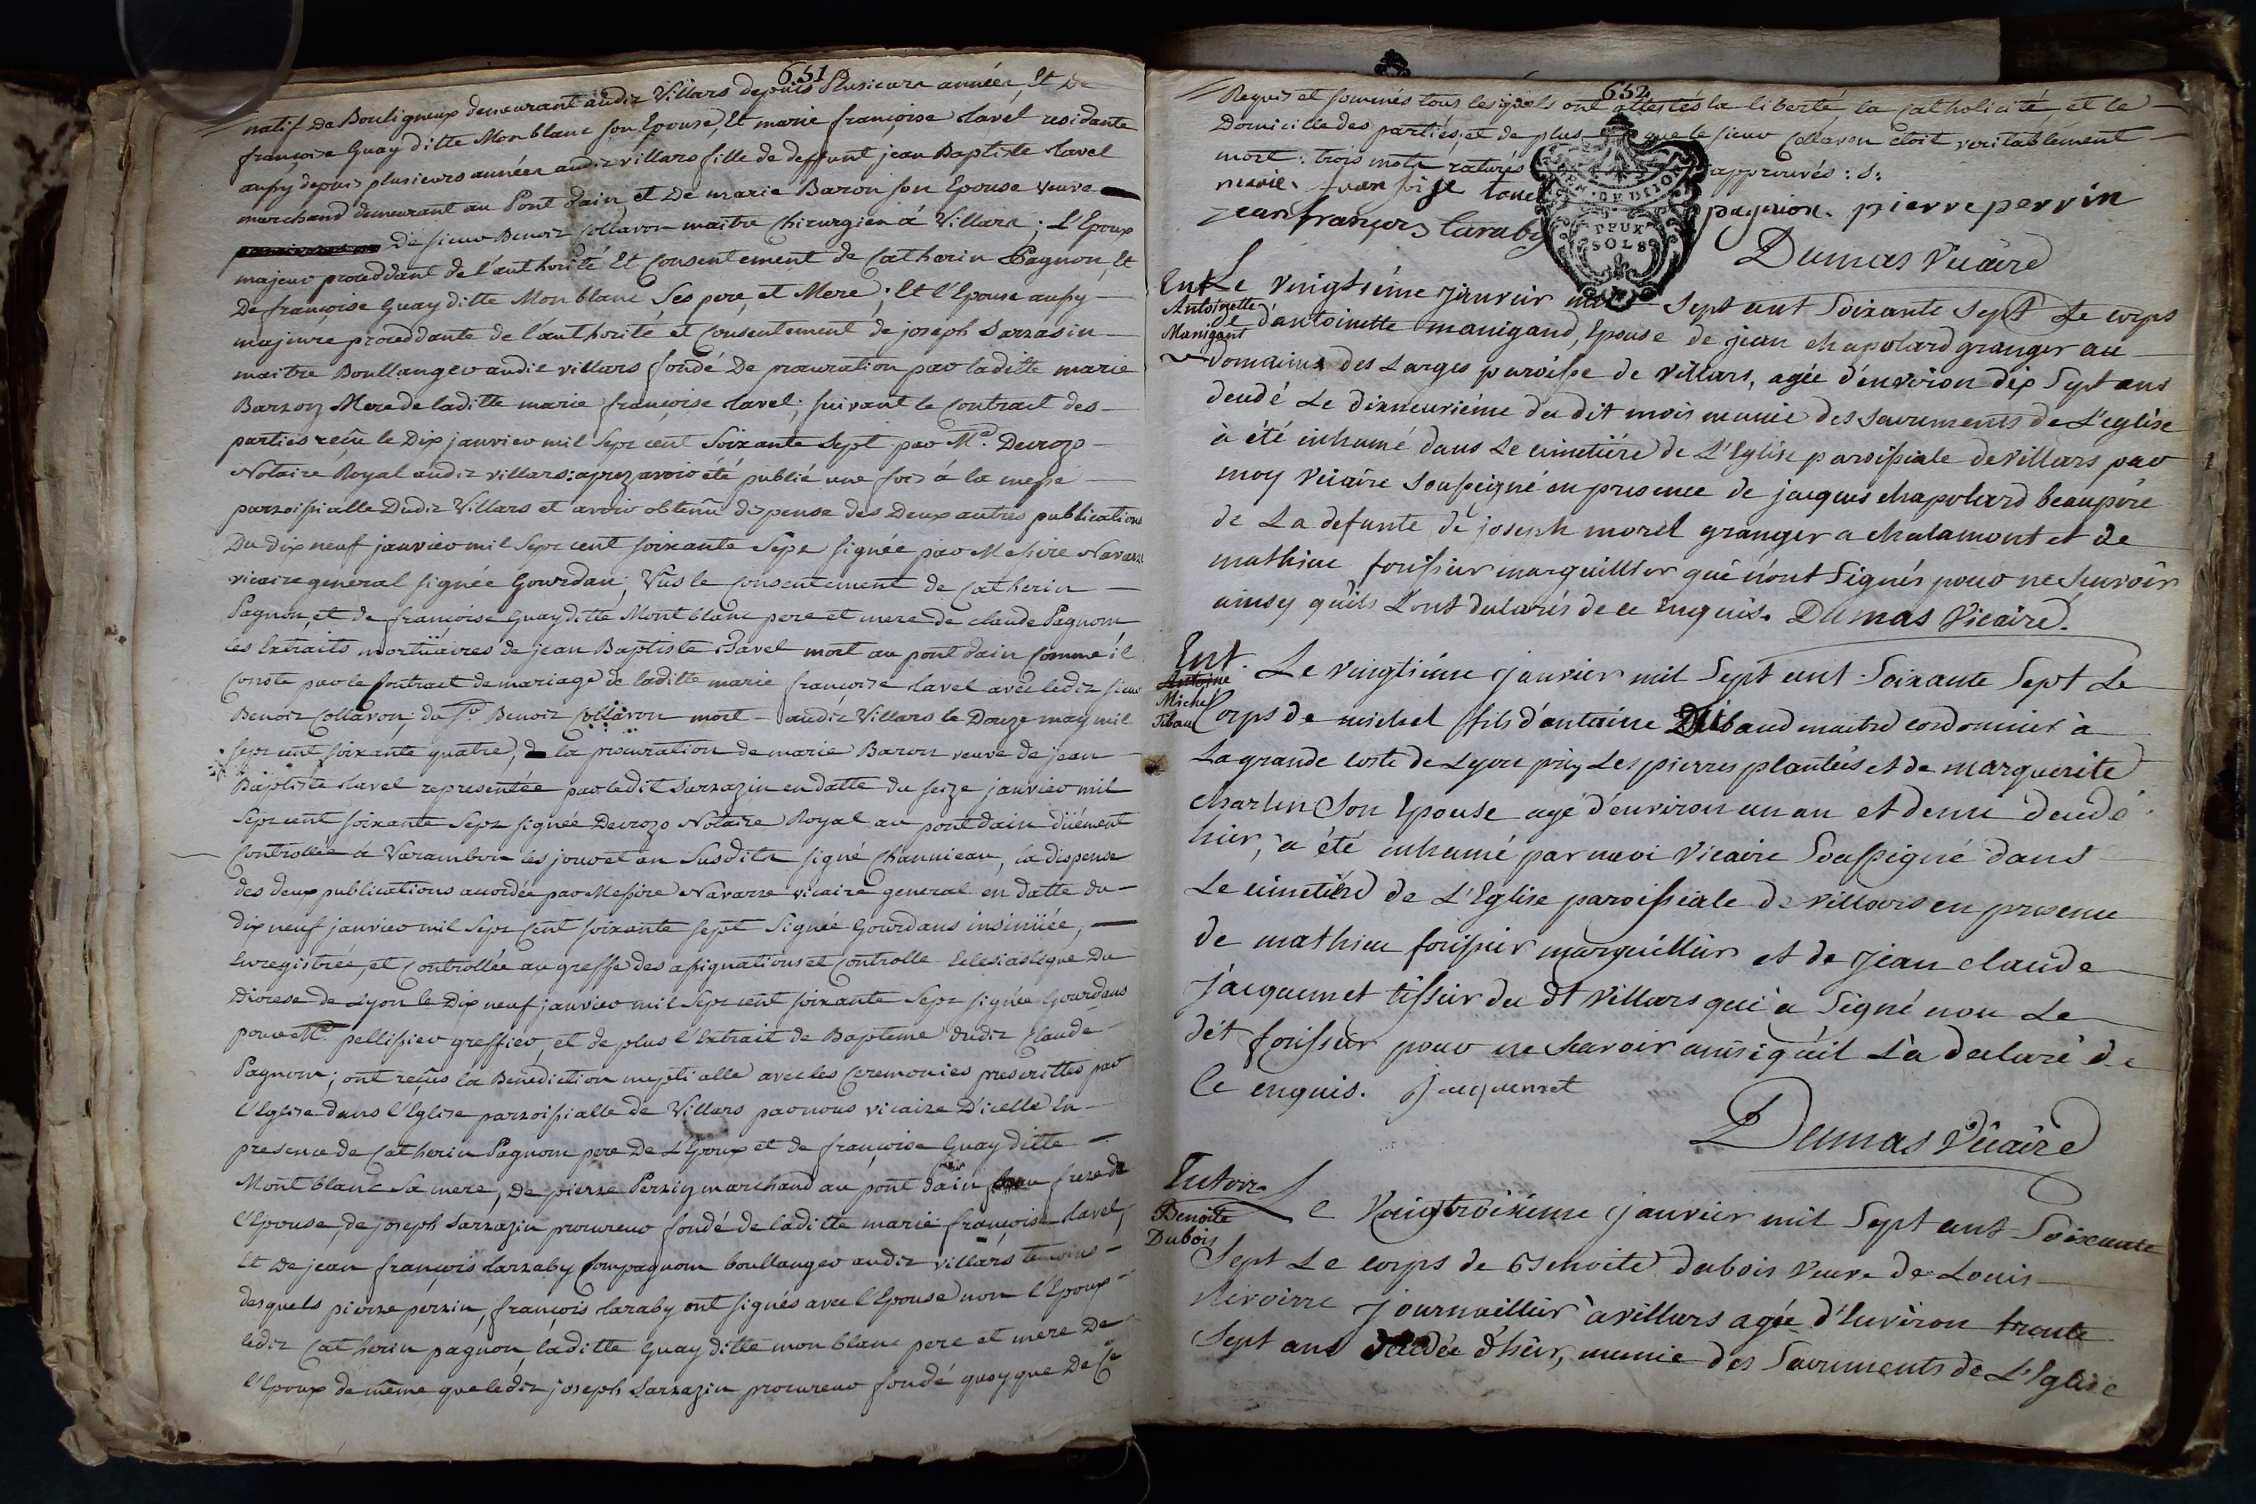 651
natif De Bouligneux demeurant audit Villars depuis Plusieurs années, Et De
françoise Guay ditte Monblanc son Epouse, Et marie françoise Lavel residante
aussy depuis plusieurs années audit villars fille de deffunt jean Baptiste Lavel
marchand demeurant au Pont dain et De marie Baron son Epouse veuve
de sieur Benoit Collavon maitre chirurgien à Villars ; L'Epoux
majeur proceddant de l'authorité Et Consentement de Catherin Pagnon Et
De françoise Guay ditte Monblanc Ses pere et Mere ; Et l'Epouse aussy
majeure proceddante de l'authorité et Consentement de joseph Sarrasin
maitre Boullanger audit villars fondé De procuration par laditte marie
Barron Mere de laditte marie françoise Lavel ; suivant le Contract des
parties reçu le Dix janvier mil Sept cent Soixante Sept par Me. Decrozo
Notaire Royal audit villars : aprez avoir été publié une fois à la messe
parroissialle Dudit Villars et avoir obtenû dispense des Deux autres publications
Du dix neuf janvier mil Sept cent soixante Sept signée par Messire Navarre
vicaire general signée Gourdan, Vûs le Consentement de Catherin
Pagnon, et de françoise Guay ditte Mont blanc pere et mere de claude Pagnon
les Extraits mortuaires de jean Baptiste Lavel mort au pont dain comme il
Conste par le Contract de mariage de laditte marie françoise Lavel avec ledit sieur
Benoit Collavon ; du Sr Benoit Collavon mort audit Villars le Douze may mil
sept cent soixante quatre, de la procuration de marie Baron veuve de jean
Baptiste Lavel representée par ledit Sarrazin en datte du seize janvier mil
Sept cent soixante Sept signée Decrozo Notaire Royal au pont dain düement
Controllée à Varambon les jour et an Susdits signé Channieau, la dispense
des deux publications accordée par Messire Navarre vicaire general en datte du
dix neuf janvier mil Sept Cent soixante sept Signée Gourdans insinüée,
Enregistrée, et Controllée au greffe des assignations et Controlle Eclesiastique Du
Diocese de Lyon le Dix neuf janvier mil Sept cent soixante Sept signée Gourdans
pour Me. pellissier greffier, et de plus l'Extrait de Bapteme dudit Claude
Pagnon ; ont reçus la Benediction nuptialle avec les Ceremonies prescrittes par
l'Eglise dans l'Eglise parroissialle de Villars par nous vicaire D'icelle En
presence de Catherin Pagnon pere De L'Epoux et de françoise Guay ditte
Mont blanc Sa mere, de pierre Perrin marchand au pont dain frere de
l'Epouse, de joseph Sarrazin procureur fondé de laditte marie françoise Lavel,
Et De jean françois Larraby Compagnon boullanger audit villars temoins
desquels pierre perrin, françois Laraby ont signés avec l'Epouse non l'Epoux
ledit Catherin pagnon, laditte Guay ditte monblanc pere et mere De
l'Epoux de même que ledit joseph Sarrazin procureur fondé quoyque De Ce
652
Requis et sommés tous lesquels ont attestés la liberté, la Catholicité, et le
Domicille des parties, et de plus que le sieur Collavon etoit veritablement
mort : trois mots raturés approuvés : S :
marie françoise Lavel pagnion. pierre perrin
jean françois Laraby
GEN. DEUX SOLS
Dumas Vicaire
Ent.
Antoinette
Manigant
Le vingtiéme janvier mil Sept cent Soixante Sept Le corps
d'antoinette manigand, Epouse de jean chapolard granger au
Domaine des Larges paroisse de Villars, agée d'environ dix Sept ans
décédé Le dixneuviéme du dit mois munie des Sacrements de L'eglise
à été inhumé dans Le cimetiére de L'Eglise paroissiale de Villars par
moy Vicaire Soussigné en presence de jacques chapolard beaupére
de La defunte de joseph morel granger a chalamont et de
mathieu forissier marguillier qui n'ont Signés pour ne Sçavoir
ainsy qu'ils L'ont declarés de ce Enquis. Dumas Vicaire.
Ent.
Antoine
Michel
Tibau
Le vingtiéme janvier mil Sept cent Soixante Sept Le
Corps de michel fils d'antoine Thibaud maitre cordonnier à
La grande Coste de Lyon près Les pierres plantées et de marguerite
charlin Son Epouse agé d'environ un an et demi décédé
hier, à été inhumé par moi Vicaire Soussigné dans
Le cimetiére de L'Eglise paroissiale de Villars en presence
de mathieu forissier marguillier et de jean claude
jacquemet tissier du dt Villars qui a Signé non Le
dit forissier pour ne Scavoir ainsi qu'il L'a declaré de
Ce enquis. Jacquemet
Dumas Vicaire
Enterr.
Benoite
Dubois
Le Vingtroisiéme janvier mil Sept cent Soixante
Sept Le corps de Benoite dubois Veuve de Louis
Rivoirre journaillier à villars agée d'Environ trente
Sept ans décédée d'hier, munie des Sacrements de L'Eglise